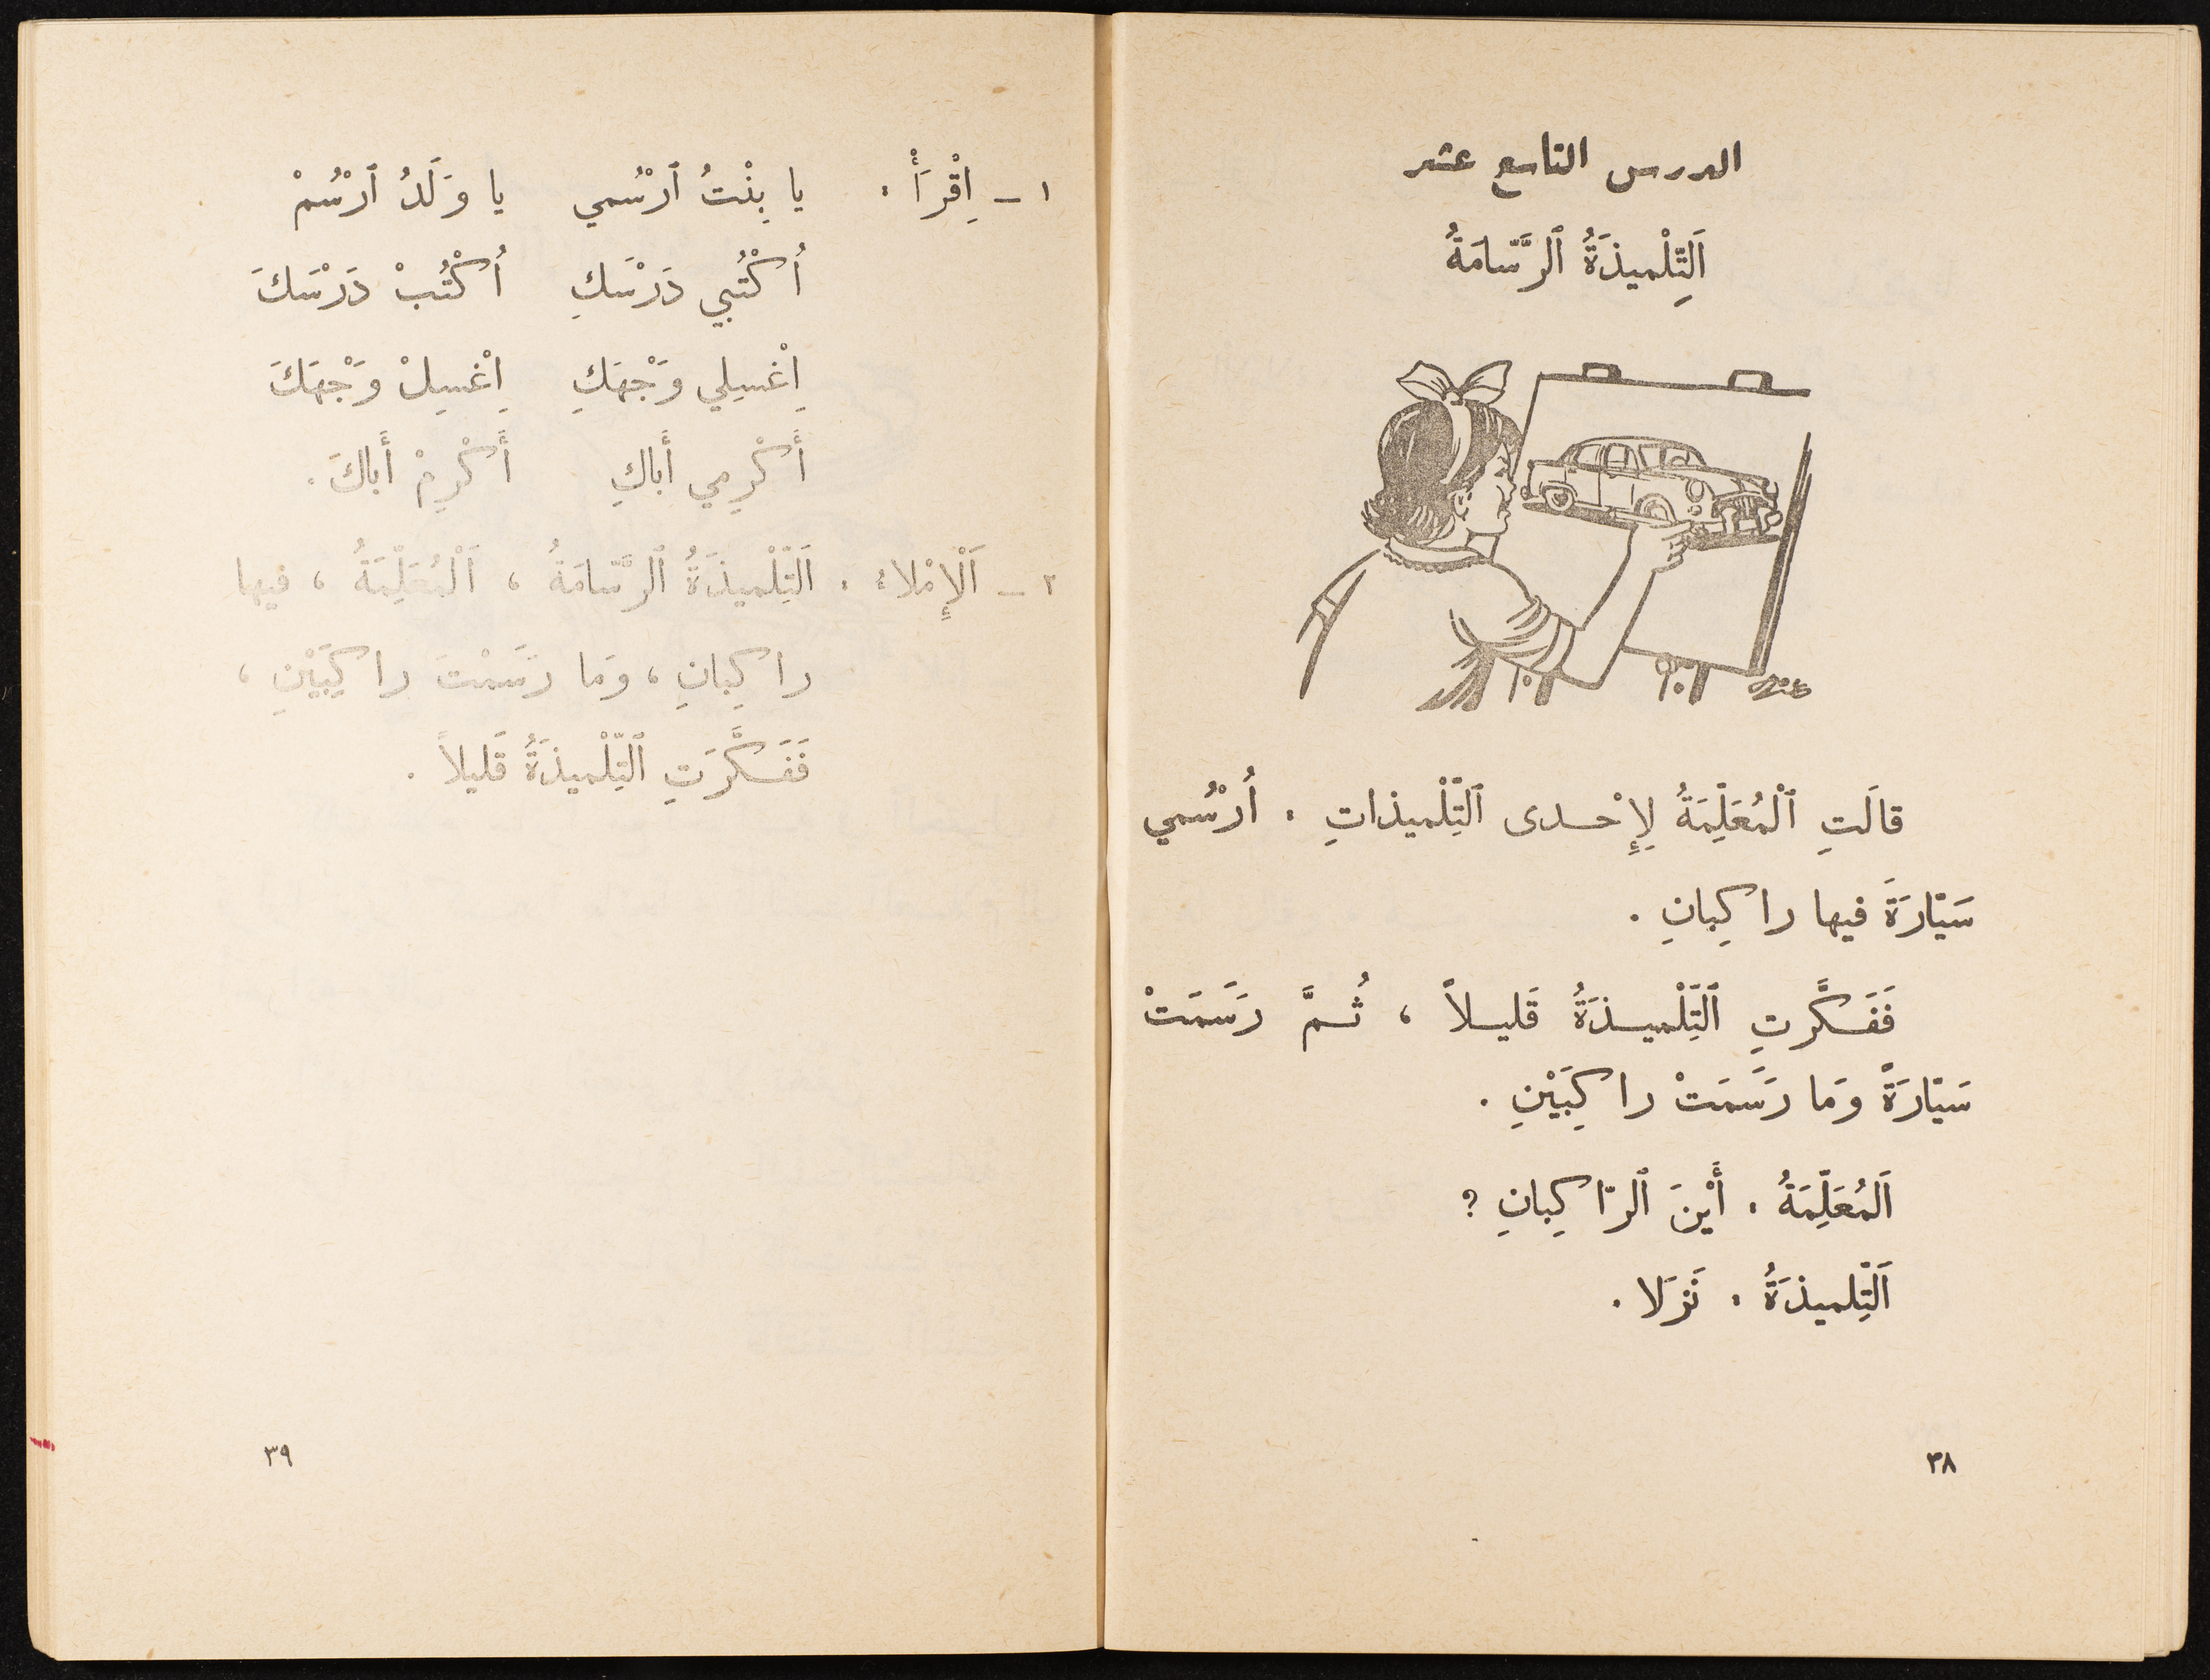 الدرس التاسع عشر
اَلتِّلْميذَةُ ٱلرَّسّامَةُ
قالَتِ ٱلْمُعَلِّمَةُ لِإِحْدى ٱلتِّلْميذاتِ : اُرْسُمي
سَيّارَةً فيها راكِبانِ .
فَفَكَّرتِ ٱلتِّلْميذَةُ قَليلاً ، ثُمَّ رَسَمَتْ
سَيّارَةً وَما رَسَمَتْ راكِبَيْنِ .
اَلمُعَلِّمَةُ : أَيْنَ ٱلرّاكِبانِ ؟
اَلتِّلميذَةُ : نَزَلا .
٣٨
١ – اِقْرَأْ : يا بِنْتُ ٱرْسُمي يا وَلَدُ ٱرْسُمْ
اُكْتُبي دَرْسَكِ اُكْتُبْ دَرْسَكَ
اِغْسِلي وَجْهَكِ اِغْسِلْ وَجْهَكَ
أَكْرِمي أَباكِ أَكْرِمْ أَباكَ .
٢ – اَلْإِمْلاء : اَلتِّلْميذَةُ ٱلرَّسّامَةُ ، اَلْمُعَلِّمَةُ ، فيها
راكِبانِ ، وَما رَسَمْتَ راكِبَيْنِ ،
فَفَكَّرَتِ ٱلتِّلْميذَةُ قَليلاً .
٣٩